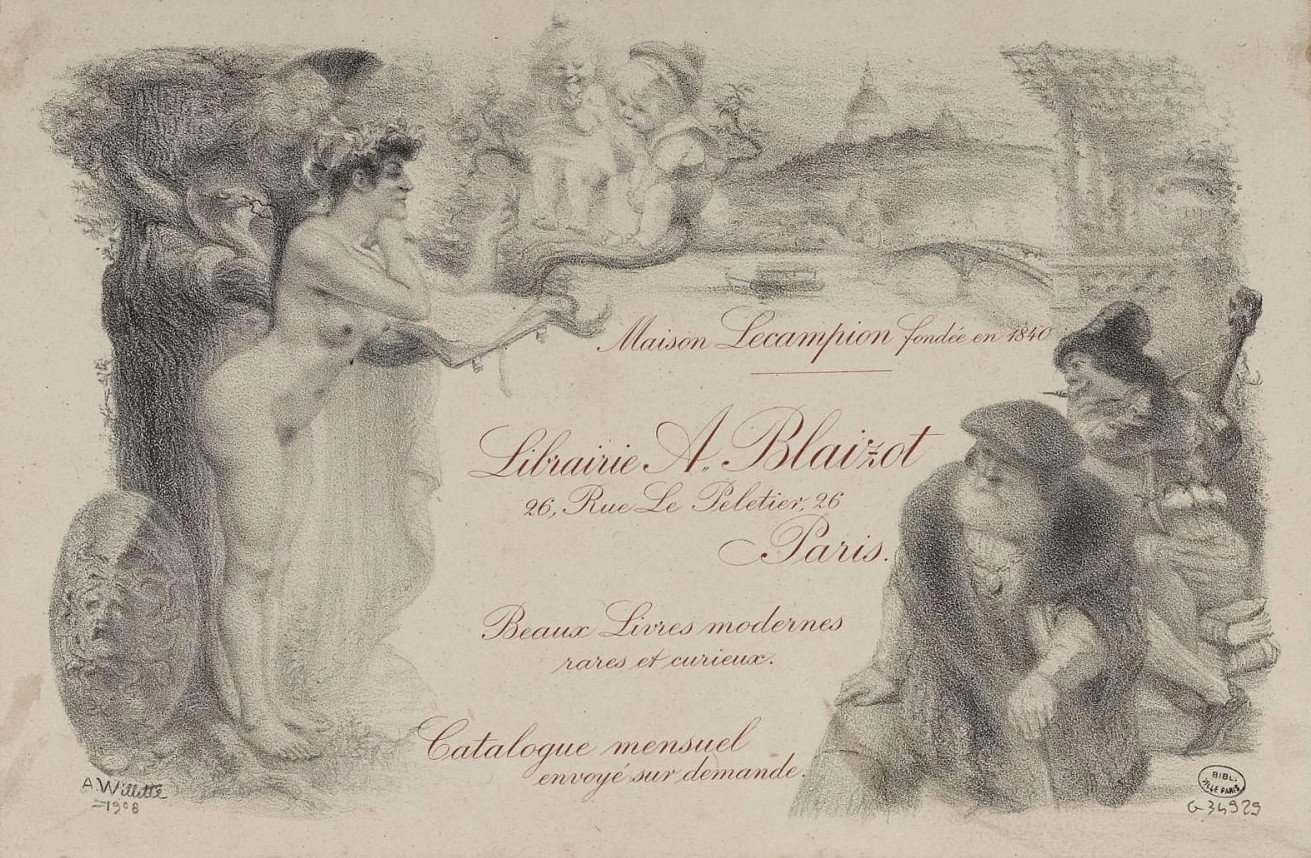 Maison Lecampion fondée en 1840
Librairie A. Blaizot
26, Rue Le Peletier, 26
Paris.
Beaux Livres modernes
rares et curieux.
Catalogue mensuel
envoyé sur demande.
A. Willette
1908
BIBL.
VILLE PARIS
G 34929